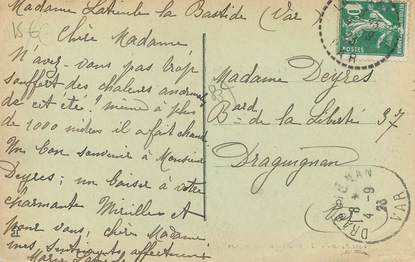 Madame Labiche la Bastide (Var)
Chère Madame
N'avez-vous pas trop
souffert des chaleurs anormales
de cet été? même à plus
de 1000 mètres il a fait chaud
Un bon souvenir à Monsieur
Deyres; un baiser à votre
charmante Mireille et
pour vous, chère Madame
mes affectueux
Marie
Madame Deyres
Bard de la Liberté 37
Draguignan
Var
POSTES
VAR
DRAGUIGNAN
8 4-9 23
VAR